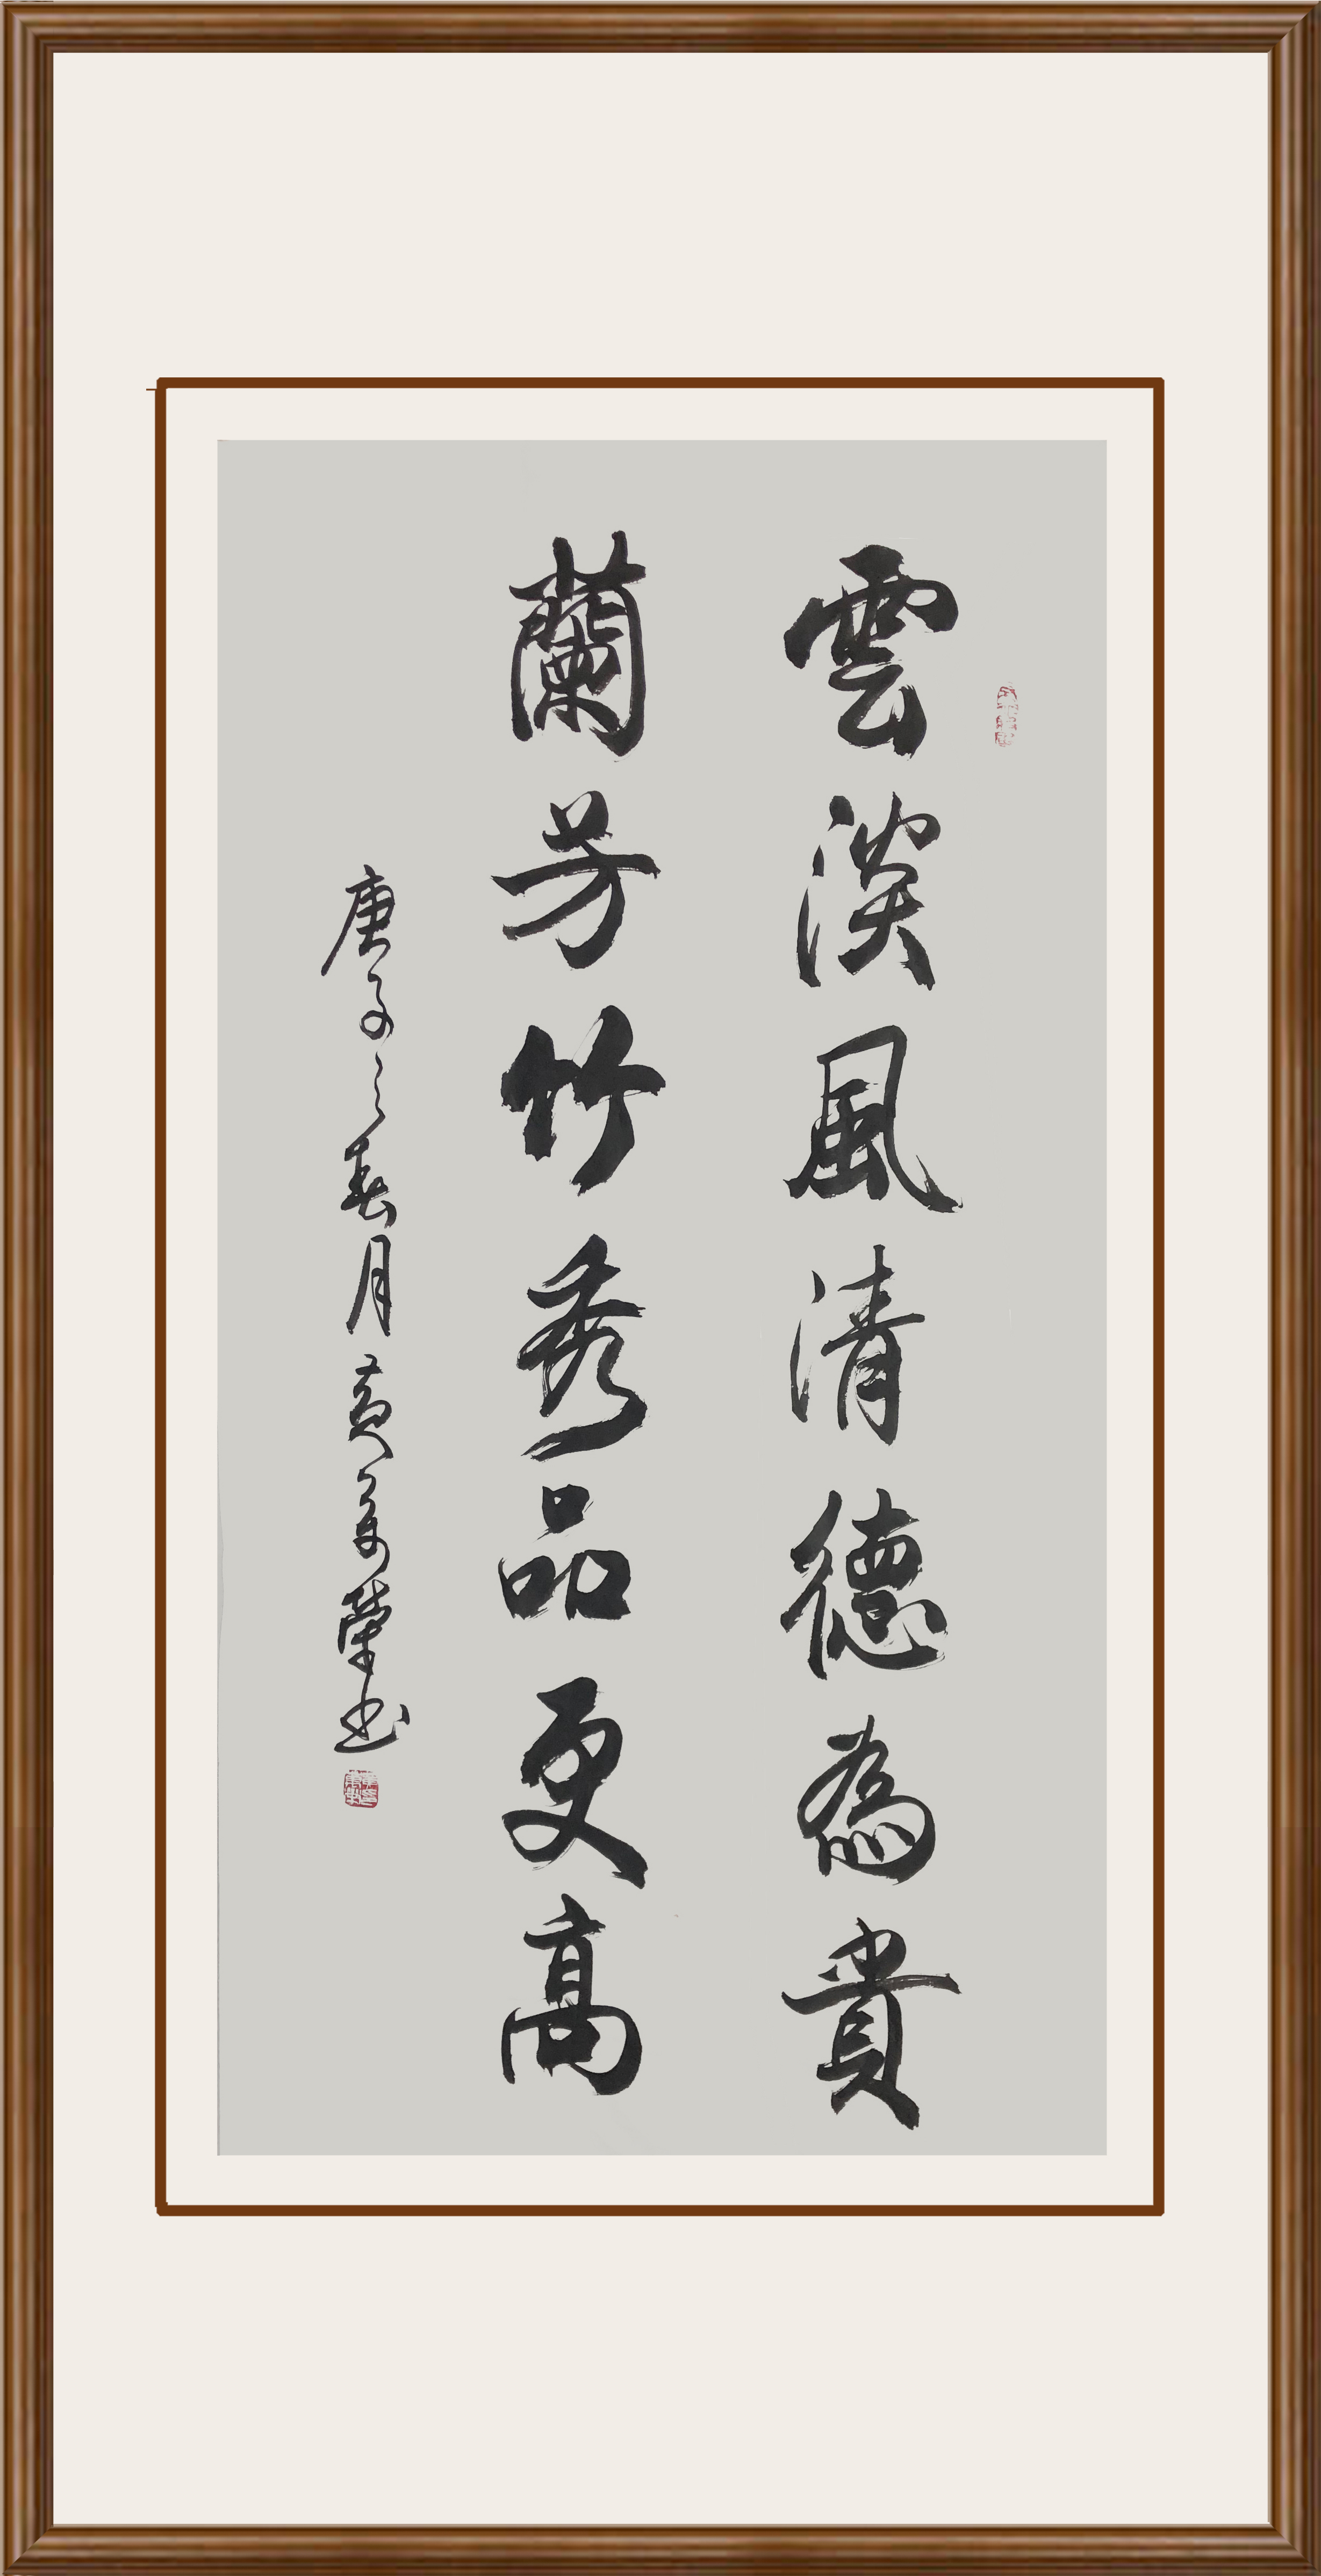 雲淡風清德為貴
蘭芳竹秀品更高
庚子之春月黃家榮书